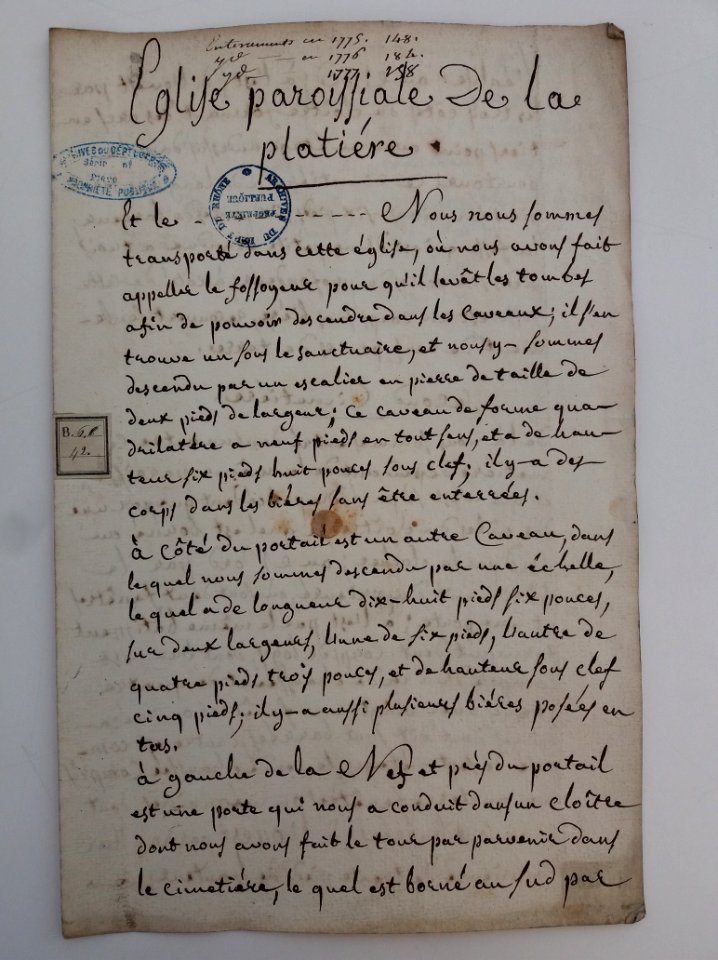 Enterrements en 1775. 148.
yd — en 1776 184.
yd — 1777 238
Eglise paroissiale De la
platiére.
ARCHIVES DU DEPT DU RHONE
PROPRIÉTÉ PUBLIQUE
ARCHIVES DU DEPT DU RHÔNE
PROPRIETE PUBLIQUE
Et le - - - - - - - - Nous nous sommes
transporté dans cette église, où nous avons fait
appeller le fossoyeur pour qu'il levêt les tombes
afin de pouvoir descendre dans les Caveaux; il s'en
trouve un sous le sanctuaire, et nous y- sommes
descendu par un escalier en pierre de taille de
deux pieds de largeur; Ce caveau de forme qua-
drilatére a neuf pieds en tout sens, et a de hau-
teur six pieds huit pouces sous clef; il y-a des
corps dans les biéres sans être enterrées.
B. 6.P.
42.
à Côté du portail est un autre Caveau, dans
le quel nous sommes descendu par une échelle,
le quel a de longueur dix-huit pieds six pouces,
sur deux largeurs, l'une de six pieds, l'autre de
quatre pieds trois pouces, et de hauteur sous clef
cinq pieds; il y-a aussi plusieurs biéres posées en
tas.
à gauche de la Nef et près du portail
est une porte qui nous a conduit dans un cloître
dont nous avons fait le tour par parvenir dans
le cimetiére, le quel est borné au sud par